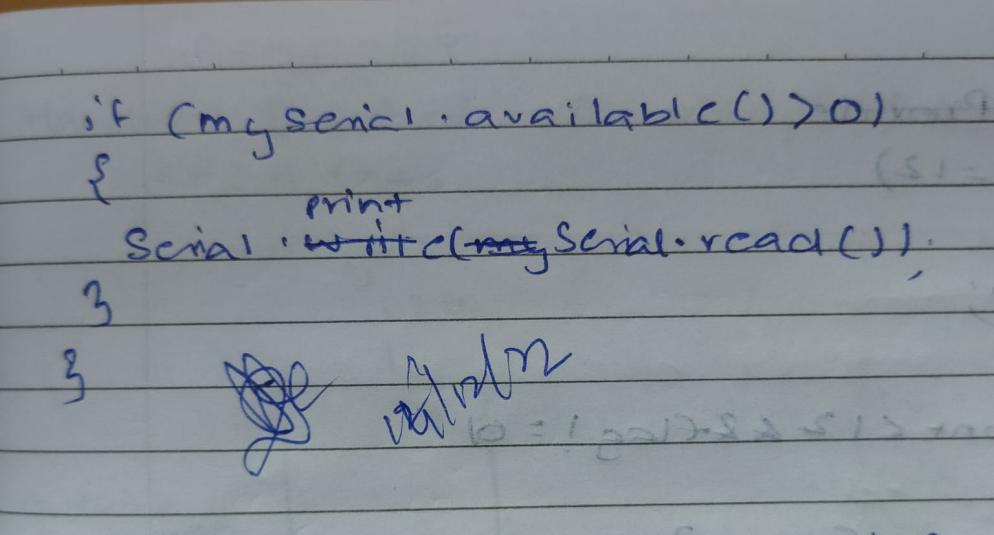 if (myserial.available()>0)
{
Serial.print(Serial.read());
}
}